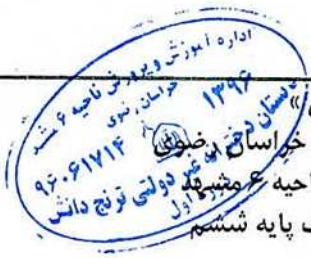 اداره آموزش و پرورش ناحیه ۶ مشهد
خراسان رضوی
۱۳۹۶
۹۶۰۶۱۷۱۴
دبستان دخترانه غیر دولتی ترنج دانش
دوره اول
»
خراسان رضوی
ناحیه ۶ مشهد
پایه ششم